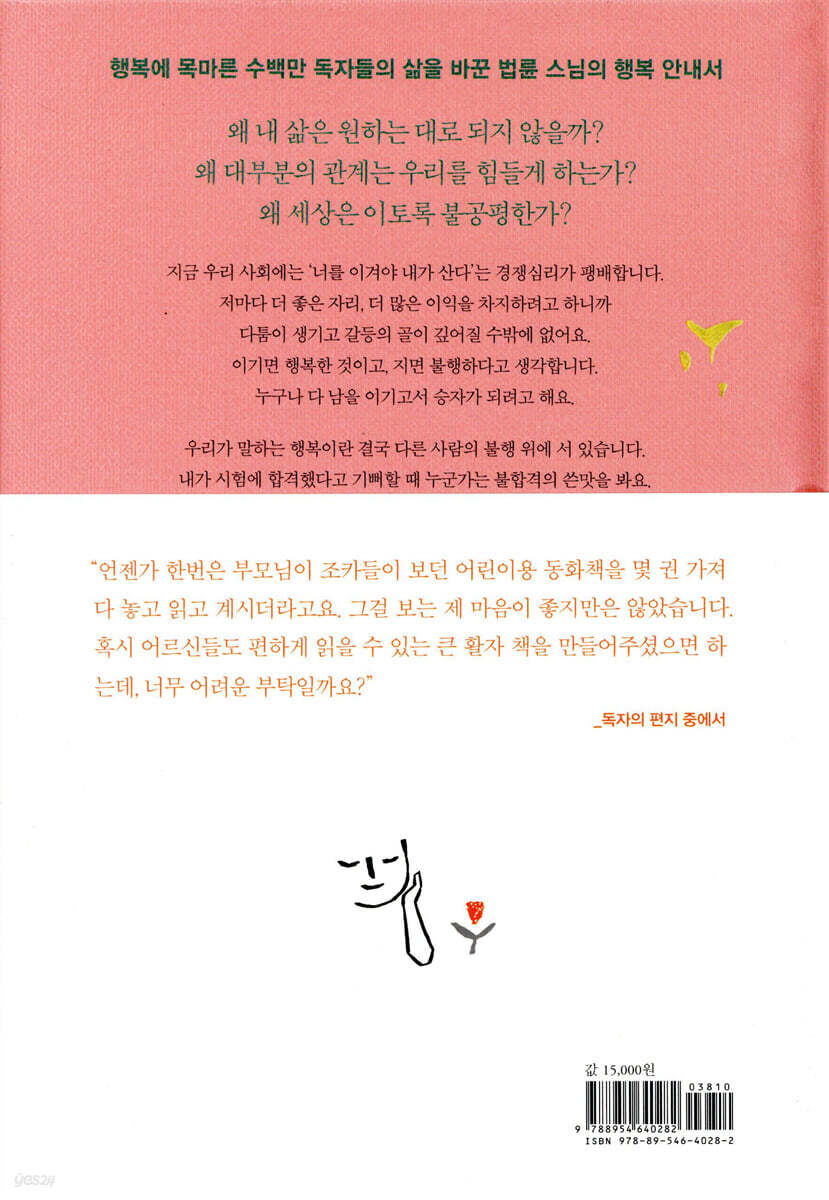 행복에 목마른 수백만 독자들의 삶을 바꾼 법륜 스님의 행복 안내서
왜 내 삶은 원하는 대로 되지 않을까?
왜 대부분의 관계는 우리를 힘들게 하는가?
왜 세상은 이토록 불공평한가?
지금 우리 사회에는 ‘너를 이겨야 내가 산다’는 경쟁심리가 팽배합니다.
저마다 더 좋은 자리, 더 많은 이익을 차지하려고 하니까
다툼이 생기고 갈등의 골이 깊어질 수밖에 없어요.
이기면 행복한 것이고, 지면 불행하다고 생각합니다.
누구나 다 남을 이기고서 승자가 되려고 해요.
우리가 말하는 행복이란 결국 다른 사람의 불행 위에 서 있습니다.
내가 시험에 합격했다고 기뻐할 때 누군가는 불합격의 쓴맛을 봐요.
“언젠가 한번은 부모님이 조카들이 보던 어린이용 동화책을 몇 권 가져
다 놓고 읽고 계시더라고요. 그걸 보는 제 마음이 좋지만은 않았습니다.
혹시 어르신들도 편하게 읽을 수 있는 큰 활자 책을 만들어주셨으면 하
는데, 너무 어려운 부탁일까요?”
_독자의 편지 중에서
값 15,000원
03810
9 788954 640282
ISBN 978-89-546-4028-2
yes24